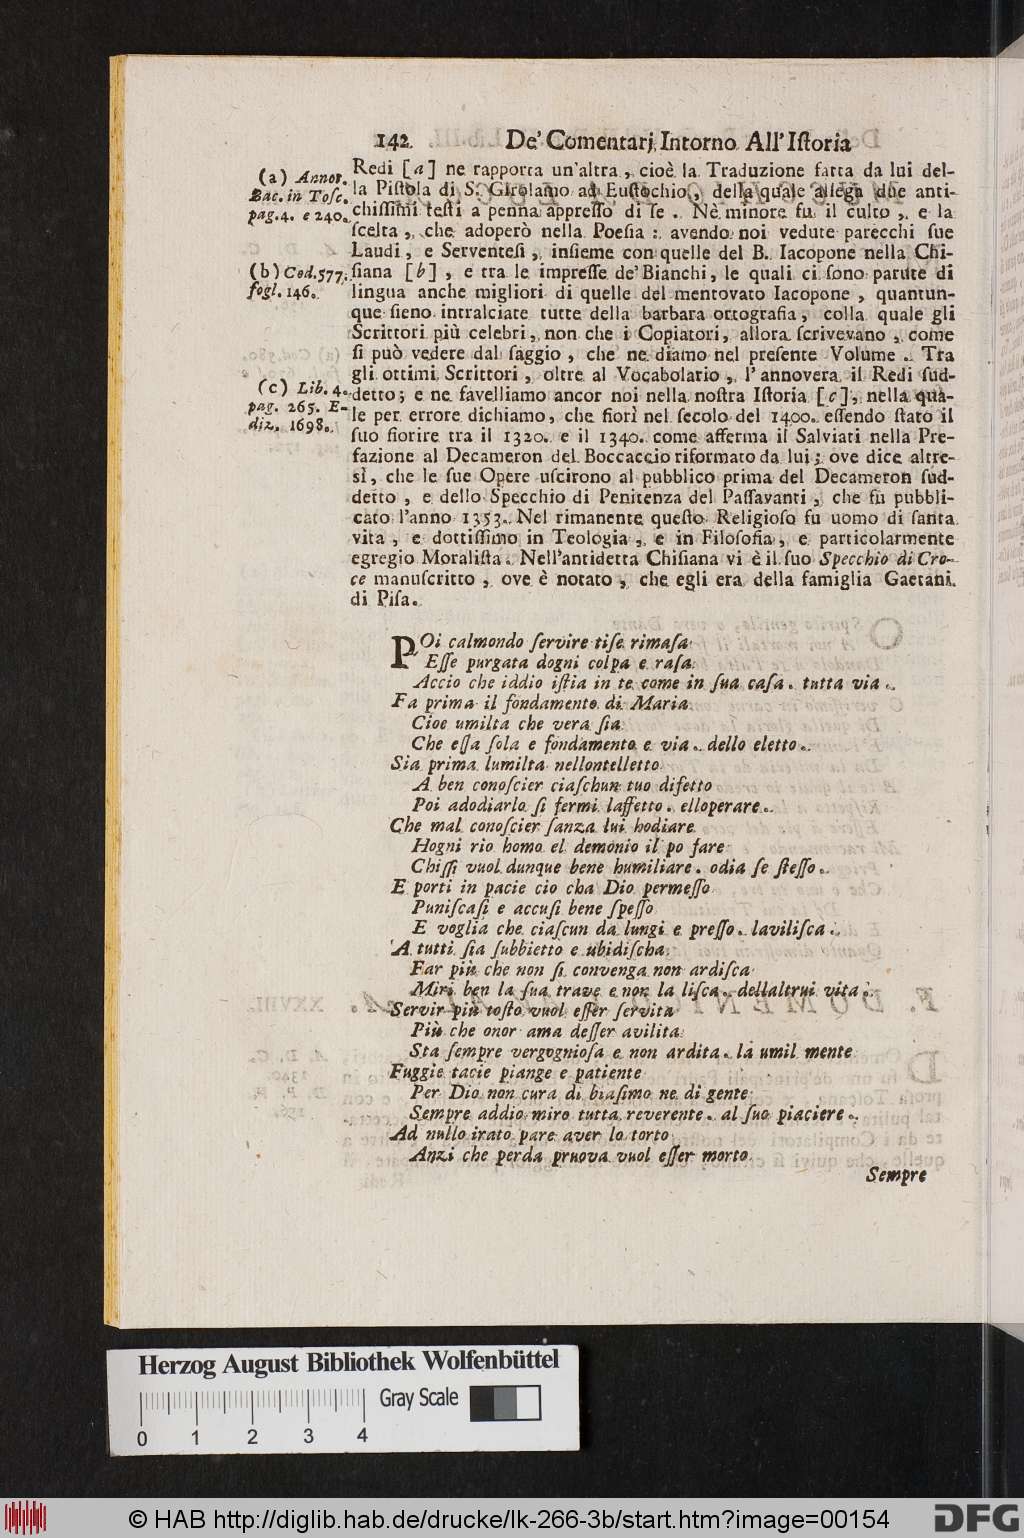 142 De' Comentarj Intorno All'Iſtoria
(a) Annot.
Bac. in Toſc.
pag. 4. e 240.
(b) Cod. 577.
fogl. 146.
(c) Lib. 4.
pag. 265. E-
diz. 1698.
Redi [a] ne rapporta un'altra, cioè la Traduzione fatta da lui del-
la Piſtola di S. Girolamo ad Euſtochio, della quale allega due anti-
chiſſimi teſti a penna appreſſo di ſe. Nè minore fu il culto, e la
ſcelta, che adoperò nella Poeſia: avendo noi vedute parecchi ſue
Laudi, e Serventeſi, inſieme con quelle del B. Iacopone nella Chi-
ſiana [b], e tra le impreſſe de'Bianchi, le quali ci ſono parute di
lingua anche migliori di quelle del mentovato Iacopone, quantun-
que ſieno intralciate tutte della barbara ortografia, colla quale gli
Scrittori più celebri, non che i Copiatori, allora ſcrivevano, come
ſi può vedere dal ſaggio, che ne diamo nel preſente Volume. Tra
gli ottimi Scrittori, oltre al Vocabolario, l'annovera il Redi ſud-
detto; e ne favelliamo ancor noi nella noſtra Iſtoria [c], nella qua-
le per errore dichiamo, che fiorì nel ſecolo del 1400. eſſendo ſtato il
ſuo fiorire tra il 1320. e il 1340. come afferma il Salviati nella Pre-
fazione al Decameron del Boccaccio riformato da lui; ove dice altre-
sì, che le ſue Opere uſcirono al pubblico prima del Decameron ſud-
detto, e dello Specchio di Penitenza del Paſſavanti, che fu pubbli-
cato l'anno 1353. Nel rimanente queſto Religioſo fu uomo di ſanta
vita, e dottiſſimo in Teologia, e in Filoſofia, e particolarmente
egregio Moraliſta. Nell'antidetta Chiſiana vi è il ſuo Specchio di Cro-
ce manuſcritto, ove è notato, che egli era della famiglia Gaetani
di Piſa.
POi calmondo ſervire tiſe rimaſa
Eſſe purgata dogni colpa e raſa
Accio che iddio iſtia in te come in ſua caſa. tutta via.
Fa prima il fondamento di Maria
Cioe umilta che vera ſia
Che eſſa ſola e fondamento e via. dello eletto.
Sia prima lumilta nellontelletto
A ben conoſcier ciaſchun tuo difetto
Poi adodiarlo ſi fermi laffetto. elloperare.
Che mal conoſcier ſanza lui hodiare
Hogni rio homo el demonio il po fare
Chiſſi vuol dunque bene humiliare. odia ſe ſteſſo.
E porti in pacie cio cha Dio permeſſo
Puniſcaſi e accuſi bene ſpeſſo
E voglia che ciaſcun da lungi e preſſo. laviliſca.
A tutti ſia ſubbietto e ubidiſcha
Far più che non ſi convenga non ardiſca
Miri ben la ſua trave e non la liſca. dellaltrui vita.
Servir più toſto vuol eſſer ſervita
Più che onor ama deſſer avilita
Sta ſempre vergognioſa e non ardita. la umil mente
Fuggie tacie piange e patiente
Per Dio non cura di biaſimo ne di gente
Sempre addio miro tutta reverente. al ſuo piaciere.
Ad nullo irato pare aver lo torto
Anzi che perda pruova vuol eſſer morto
Sempre
Herzog August Bibliothek Wolfenbüttel
Gray Scale
0 1 2 3 4
© HAB http://diglib.hab.de/drucke/lk-266-3b/start.htm?image=00154
DFG